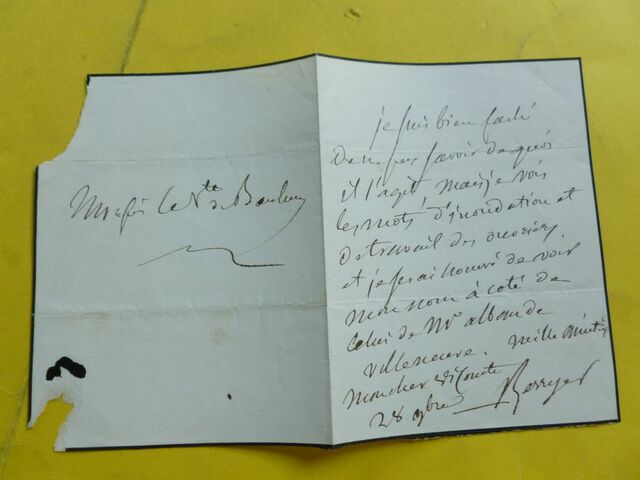 Monsieur le Vte de
je suis bien faché
de ne pas savoir de quoi
il s'agit mais je vois
les mots d'inondation et
de travail des ouvriers.
et je serai honoré de voir
mon nom à coté de
celui de Mr alban de
villeneuve. mille amitiés
mon cher vicomte
28 9bre Berryer